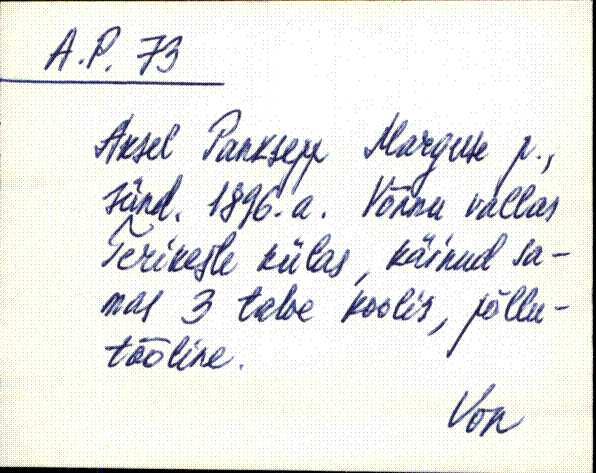 A.P. 73
Aksel Panksepp Marguse p.,
sünd. 1896. a. Võnnu vallas
Terikeste külas, käinud sa-
mas 3 talve koolis, põllu-
tööline.
Võn